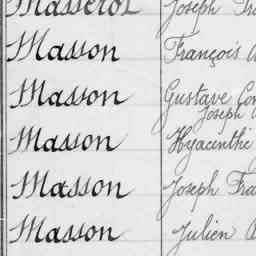 Masserot Joseph
Masson François
Masson Gustave
Joseph
Masson Hyacinthe
Masson Joseph
Masson Julien